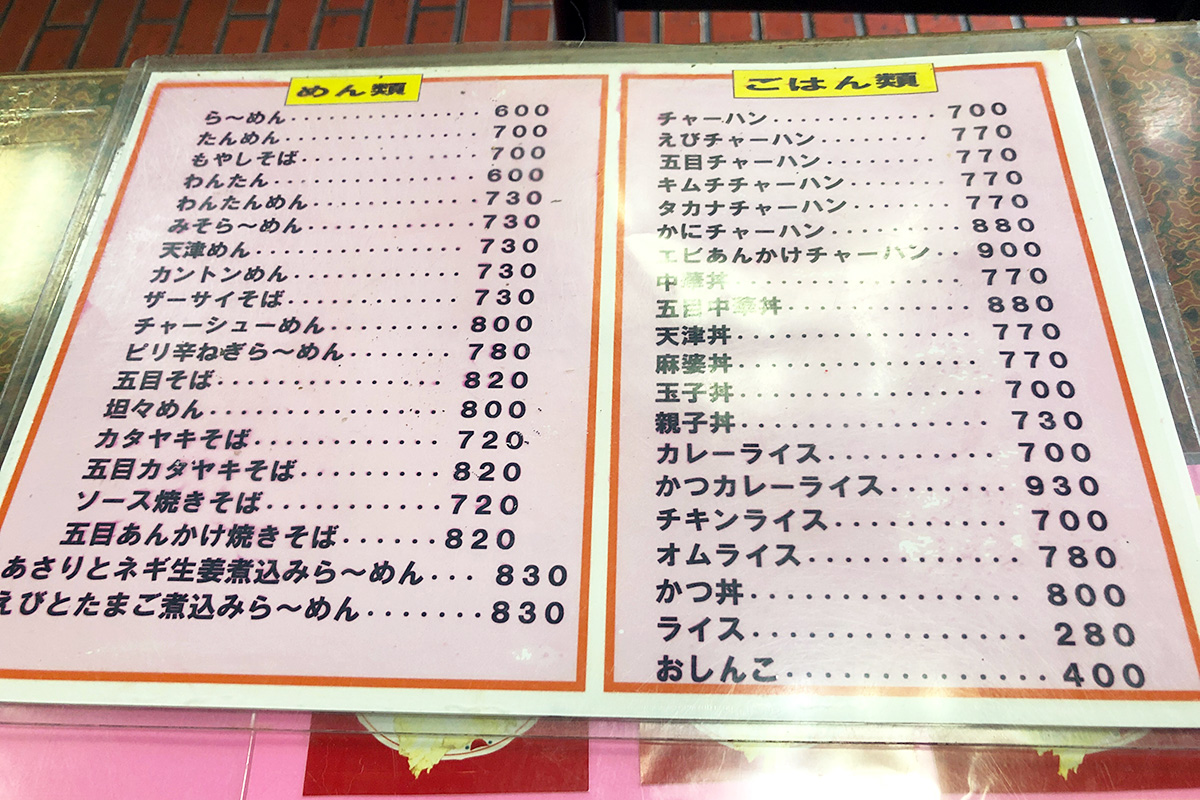 めん類
ら〜めん............... 600
たんめん............... 700
もやしそば............... 700
わんたん............... 600
わんたんめん............. 730
みそら〜めん............. 730
天津めん............... 730
カントンめん............. 730
ザーサイそば............. 730
チャーシューめん......... 800
ピリ辛ねぎら〜めん........ 780
五目そば................ 820
坦々めん................ 800
カタヤキそば............ 720
五目カタヤキそば......... 820
ソース焼きそば........... 720
五目あんかけ焼きそば...... 820
あさりとネギ生姜煮込みら〜めん... 830
えびとたまご煮込みら〜めん....... 830
ごはん類
チャーハン............. 700
えびチャーハン......... 770
五目チャーハン......... 770
キムチチャーハン....... 770
タカナチャーハン....... 770
かにチャーハン......... 880
エビあんかけチャーハン.. 900
中華丼............... 770
五目中華丼............ 880
天津丼............... 770
麻婆丼................ 770
玉子丼................ 700
親子丼................ 730
カレーライス............ 700
かつカレーライス........ 930
チキンライス........... 700
オムライス............. 780
かつ丼................ 800
ライス................ 280
おしんこ............... 400